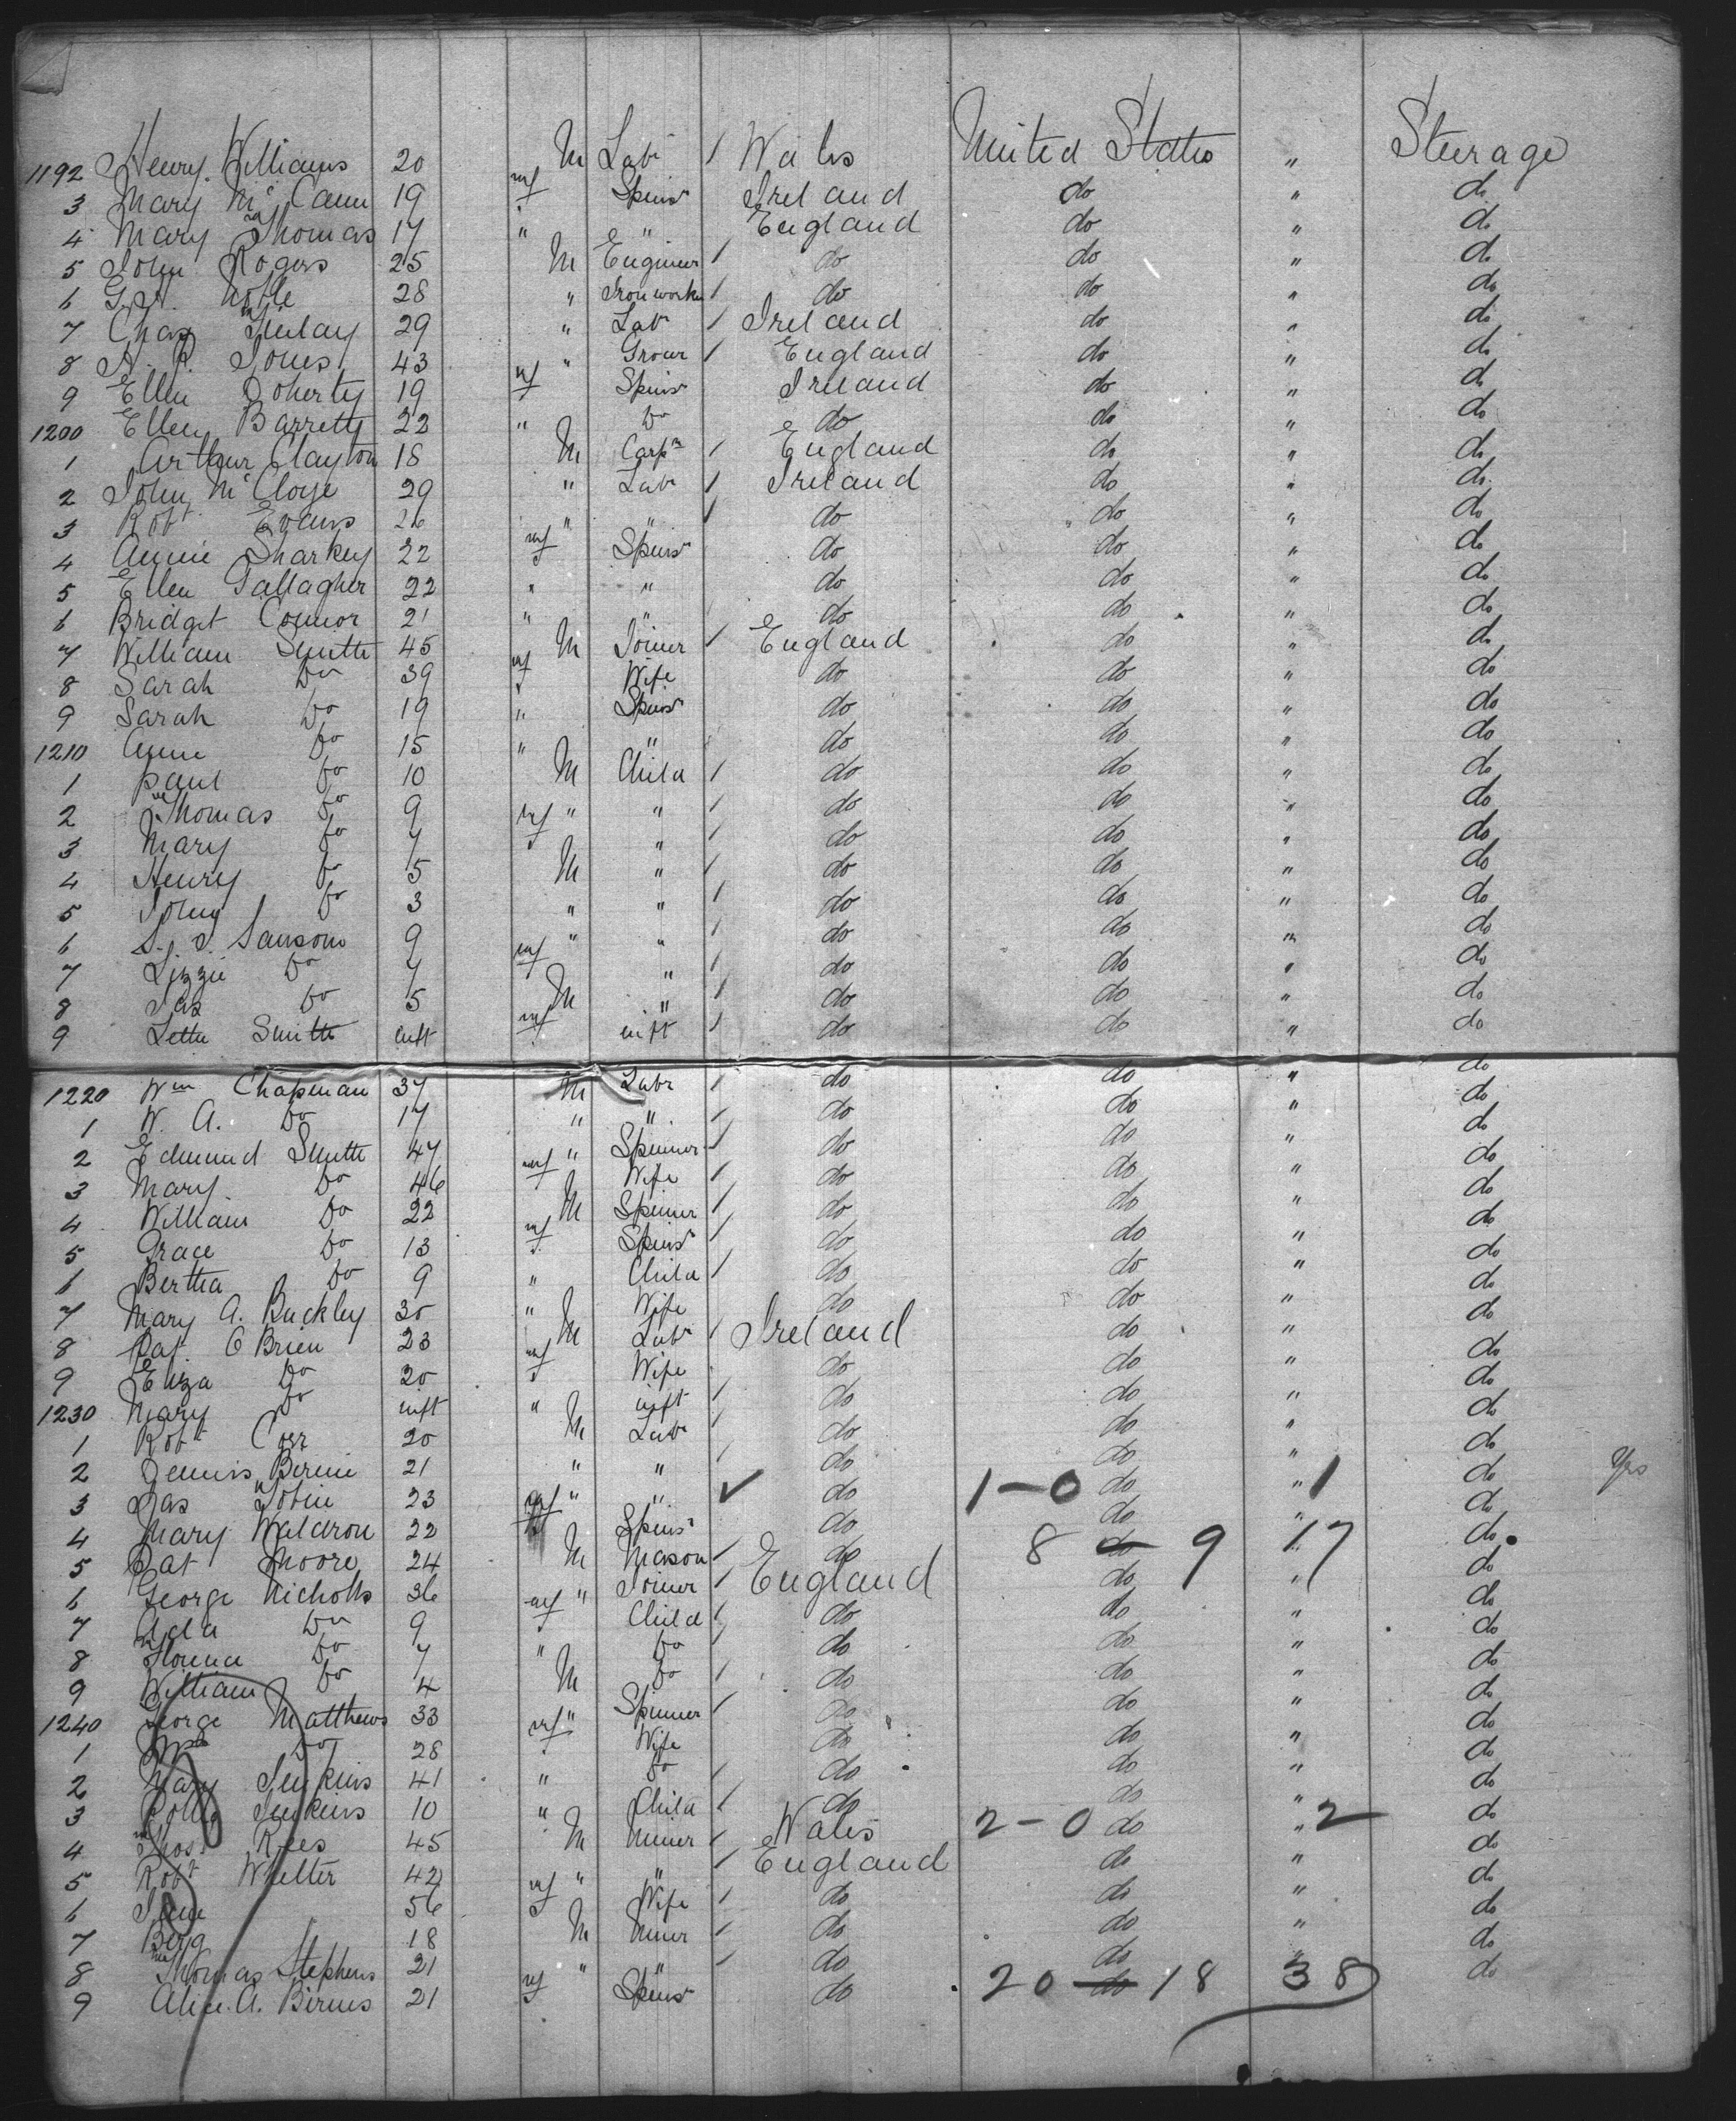 1192 Henry Williams 20 M Labr / Wales United States " Steerage
3 Mary McCann 19 mf Spinsr Ireland do " do
4 Mary Thomas 17 " " England do " do
5 John Rogers 25 M Engineer / do do " do
6 G. H. Noble 28 " Ironworker / do do " do
7 Chas Finlay 29 " Labr / Ireland do " do
8 A. R. Jones 43 " Grocer / England do " do
9 Ellen Doherty 19 mf Spinsr Ireland do " do
1200 Ellen Barrett 22 " Do do do " do
1 Arthur Clayton 18 M Carpr / England do " do
2 John McCloye 29 " Labr / Ireland do " do
3 Robt Evans 26 " " / do do " do
4 Annie Sharkey 22 mf Spinsr do do " do
5 Ellen Gallagher 22 " " do do " do
6 Bridget Connor 21 " " do do " do
7 William Smith 45 M Joiner / England do " do
8 Sarah Do 39 mf Wife do do " do
9 Sarah Do 19 " Spinsr do do " do
1210 Anne Do 15 " " do do " do
1 Paul Do 10 M Child / do do " do
2 Thomas Do 9 " " / do do " do
3 Mary Do 7 mf " / do do " do
4 Henry Do 5 M " / do do " do
5 John Do 3 " " / do do " do
6 S. J. Sansom 9 " " / do do " do
7 Lizzie Do 7 mf " / do do " do
8 Jas Do 5 M " / do do " do
9 Lettie Smith inft mf inft / do do " do
1220 Wm Chapman 37 M Labr / do do " do
1 W. A. Do 17 " " / do do " do
2 Edmund Smith 47 " Spinner / do do " do
3 Mary Do 46 mf Wife / do do " do
4 William Do 22 M Spinner / do do " do
5 Grace Do 13 mf Spinsr / do do " do
6 Bertha Do 9 " Child / do do " do
7 Mary A. Buckley 30 " Wife do do " do
8 Pat O Brien 23 M Labr / Ireland do " do
9 Eliza Do 20 mf Wife do do " do
1230 Mary Do inft " inft / do do " do
1 Robt Corr 20 M Labr / do do " do
2 Dennis Birnie 21 " " / do do " do Yes
3 Jas Tobin 23 " " ✓ do 1-0 do " 1 do
4 Mary Waldron 22 mf Spinsr do do " do
5 Pat Moore 24 M Mason / do 8 do 9 " 17 do
6 George Nicholls 36 " Joiner / England do " do
7 Ada Do 9 mf Child / do do " do
8 Florence Do 7 " Do / do do " do
9 William Do 4 M Do / do do " do
1240 George Matthews 33 " Spinner / do do " do
1 Mrs Do 28 mf Wife do do " do
2 Mary Jenkins 41 " Do / do do " do
3 Jenkins 10 " Child / do do " do
4 Thos Rees 45 M Miner / Wales 2-0 do " 2 do
5 Robt Whitter 42 " " / England do " do
6 Jane 56 mf Wife / do do " do
7 Benj 18 M Miner / do do " do
8 Thomas Stephens 21 " " / do do " do
9 Alice A. Birnes 21 mf Spinsr do 20 do 18 38 do